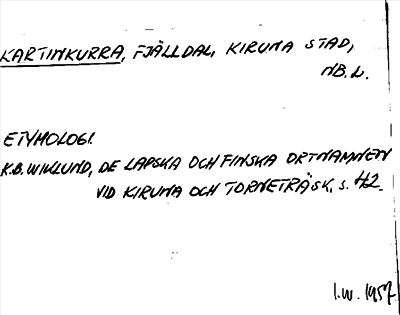 KARTINKURRA, FJÄLLDAL, KIRUNA STAD,
NB. L.
ETYMOLOGI.
K.B. WIKLUND, DE LAPSKA OCH FINSKA ORTNAMNEN
VID KIRUNA OCH TORNETRÄSK, S. 42.
I.W. 1957